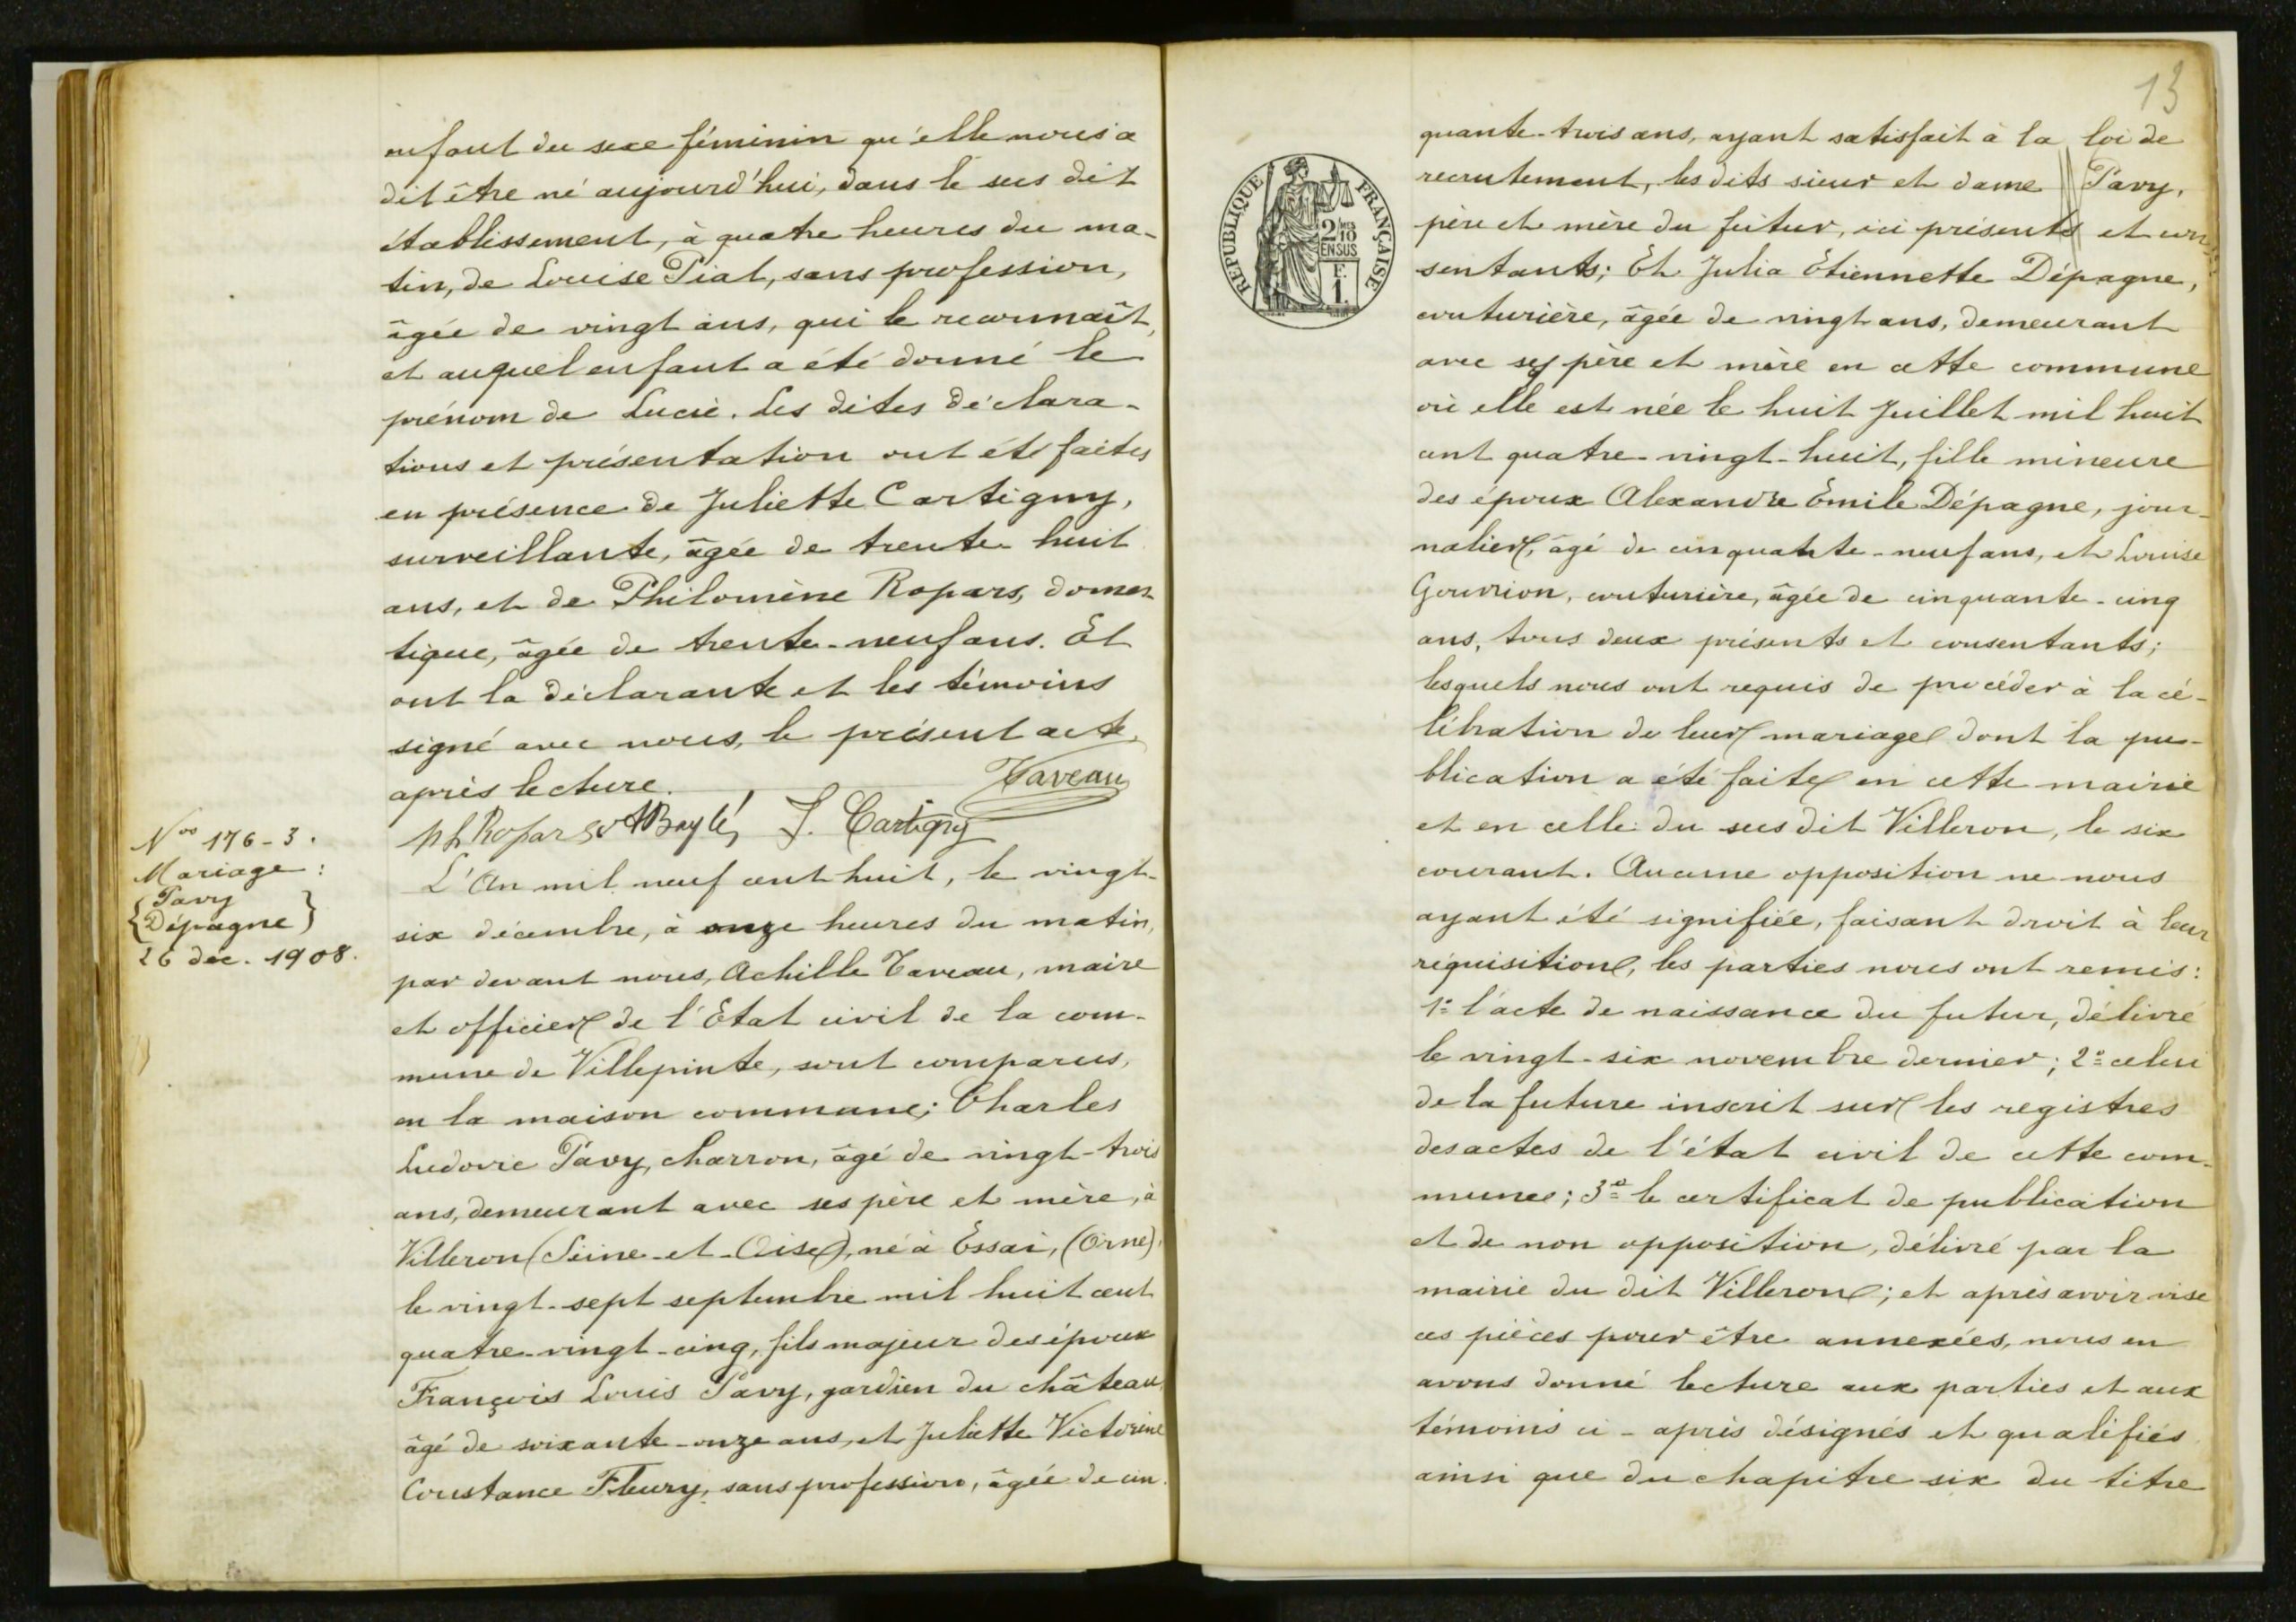 enfant du sexe féminin qu'elle nous a
dit être né aujourd'hui, dans le sus dit
établissement, à quatre heures du ma-
tin, de Louise Pial, sans profession,
âgée de vingt ans, qui le reconnaît,
et auquel enfant a été donné le
prénom de Lucie. Les dites déclara-
tions et présentation ont été faites
en présence de Juliette Cartigny,
surveillante, âgée de trente-huit
ans, et de Philomène Ropars, domes-
tique, âgée de trente-neuf ans. Et
ont la déclarante et les témoins
signé avec nous, le présent acte,
après lecture. Taveau
ph Ropars J. Cartigny
Nos 176-3.
Mariage:
Pavy
Dépagne
26 déc. 1908.
L'An mil neuf cent huit, le vingt-
six décembre, à onze heures du matin,
par devant nous, Achille Taveau, maire
et officier de l'Etat civil de la com-
mune de Villepinte, sont comparus,
en la maison commune; Charles
Ludovic Pavy, charron, âgé de vingt-trois
ans, demeurant avec ses père et mère, à
Villeron (Seine-et-Oise), né à Essai, (Orne),
le vingt-sept septembre mil huit cent
quatre-vingt-cinq, fils majeur des époux
François Louis Pavy, gardien du château,
âgé de soixante-onze ans, et Juliette Victorine
Constance Fleury, sans profession, âgée de cin-
13
RÉPUBLIQUE FRANÇAISE
2/10
EN SUS
F.
1.
quante-trois ans, ayant satisfait à la loi de
recrutement, les dits sieur et dame Pavy,
père et mère du futur, ici présents et con-
sentants; Et Julia Etiennette Dépagne,
couturière, âgée de vingt ans, demeurant
avec ses père et mère en cette commune
où elle est née le huit Juillet mil huit
cent quatre-vingt-huit, fille mineure
des époux Alexandre Emile Dépagne, jour-
nalier, âgé de cinquante-neuf ans, et Louise
Gouvrion, couturière, âgée de cinquante-cinq
ans, tous deux présents et consentants;
lesquels nous ont requis de procéder à la cé-
lébration de leur mariage dont la pu-
blication a été faite en cette mairie
et en celle du sus dit Villeron, le six
courant. Aucune opposition ne nous
ayant été signifiée, faisant droit à leur
réquisition, les parties nous ont remis:
1º l'acte de naissance du futur, délivré
le vingt-six novembre dernier; 2º celui
de la future inscrit sur les registres
des actes de l'état civil de cette com-
mune; 3º le certificat de publication
et de non opposition, délivré par la
mairie du dit Villeron; et après avoir visé
ces pièces pour être annexées, nous en
avons donné lecture aux parties et aux
témoins ci-après désignés et qualifiés
ainsi que du chapitre six du titre